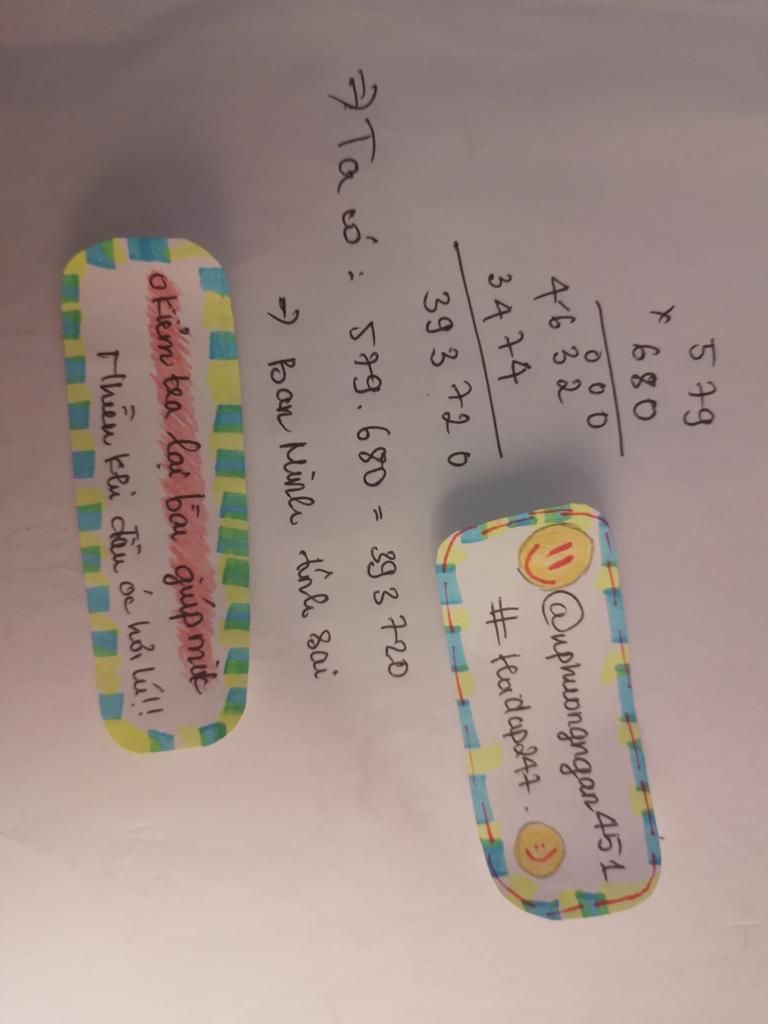 579
× 680
000
4632
3474
393720
=> Ta có : 579.680 = 393720
=> Bạn Minh tính sai
@nphuongngan451
#Hoidap247.
Kiểm tra lại bài giúp mik
Nhiều khi đầu óc hơi lú!!